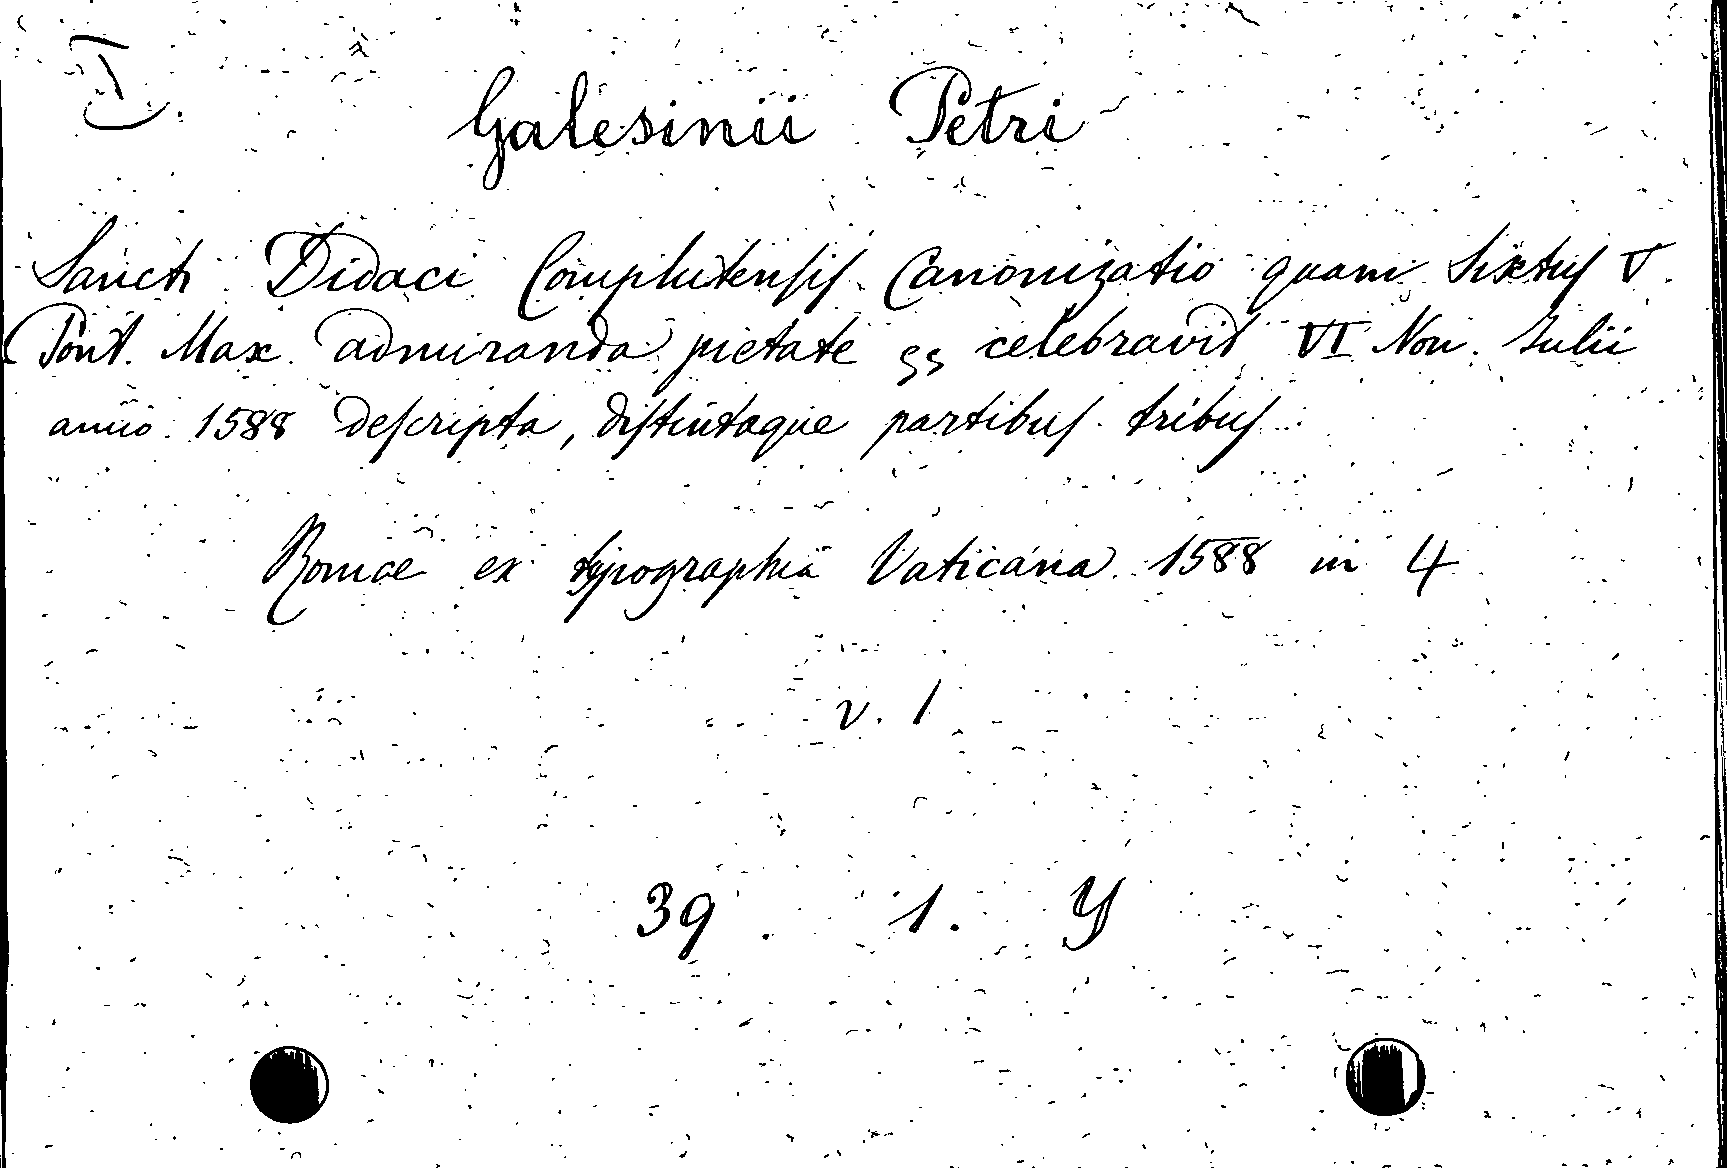 I.
Galesinii Petri
Sancti Didaci Complutensis Canonizatio quam Sixtus V.
Pont. Max. admiranda pietate celebravit VI Non. Julii
anno 1588 descripta, distintaque partibus tribus
Romae ex typographia Vaticana 1588 in 4
v. 1
39. 1. Y